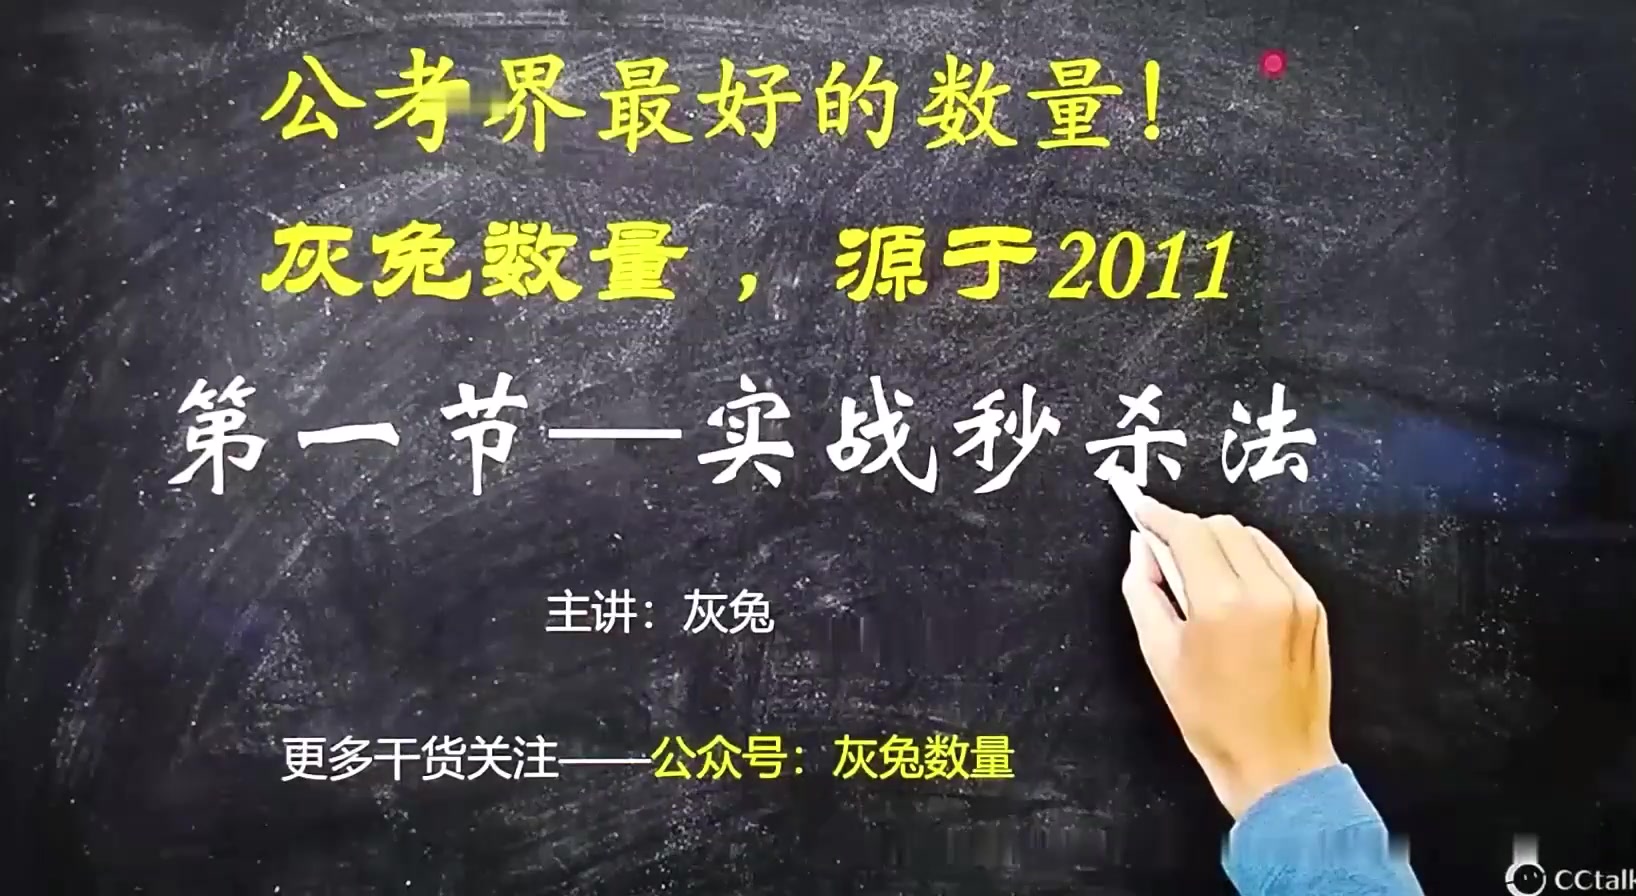 公考界最好的数量!
灰兔数量，源于2011
第一节—实战秒杀法
主讲：灰兔
更多干货关注——公众号：灰兔数量
CCtalk